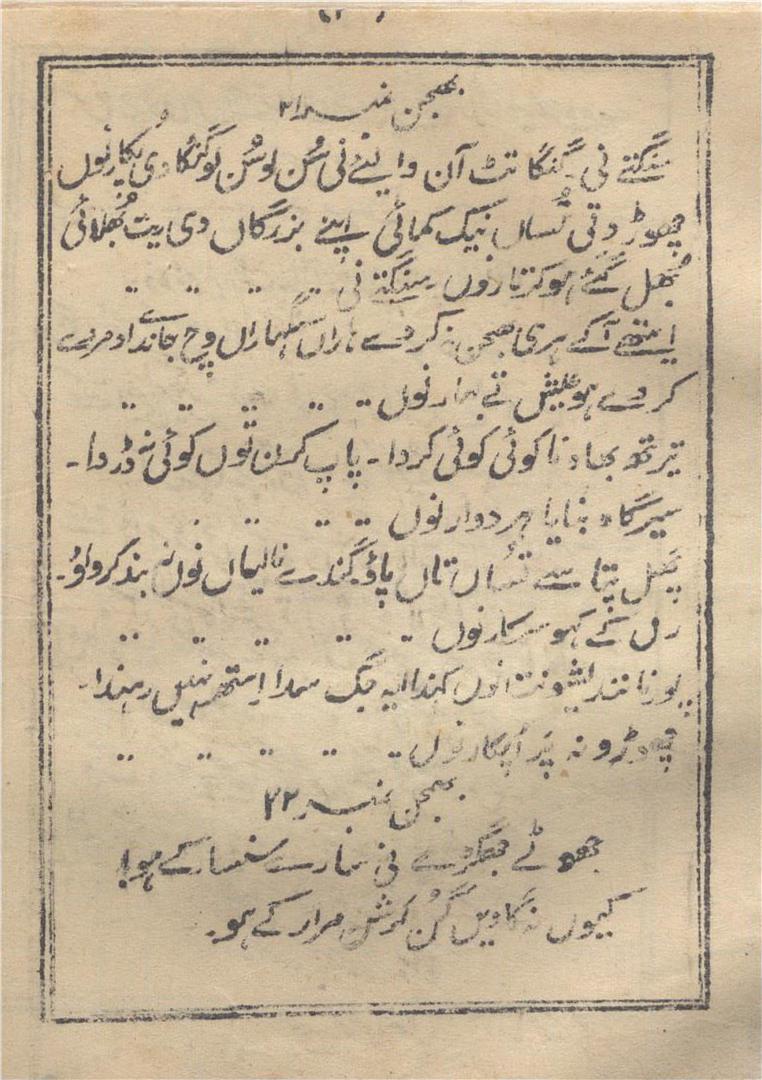 بھجن نمبر ۲۱
سنگتے نی گنگا تٹ آن والیئے نی سُن لو سُن لو گنگا دی پکار نوں
چھوڑ دتی تُساں نیک کمائی اپنے بزرگاں دی ریت بُھلائی
بُھل گئے ہو کرتار نوں سنگتے نی
ایتھے آکے ہری بھجن نہ کردے ہاراں سنگھاراں وچ جاندے
کردے ہو عیش تے بہار نوں
تیرتھ بھاونا کوئی کوئی کردا۔ پاپ کرن توں کوئی نہ ڈردا۔
سیرگاہ بنایا ہردوار نوں
پھل پتا سے تُساں تاں پاؤ گندے نالیاں نوں نہ بند کرواؤ۔
رل کے کہو سرکار نوں
پورنانند نوں کہندا ایہ جگ سدا استھر نہیں رہندا۔
چھوڑو نہ پر اُپکار نوں
بھجن نمبر ۲۲
جھوٹے جھگڑے نی سارے سنسار کے ہو!
کیوں نہ گاویں گُن کرشن مرار کے ہو۔